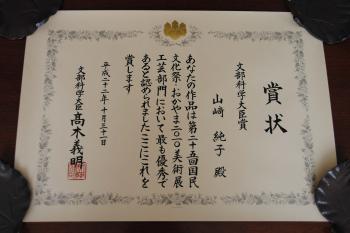 賞状
文部科学大臣賞
山﨑 純子 殿
あなたの作品は第二十五回国民
文化祭・おかやま二〇一〇美術展
工芸部門において最も優秀で
あると認められましたここにこれを
賞します
平成二十二年十月三十一日
文部科学大臣 髙木義明